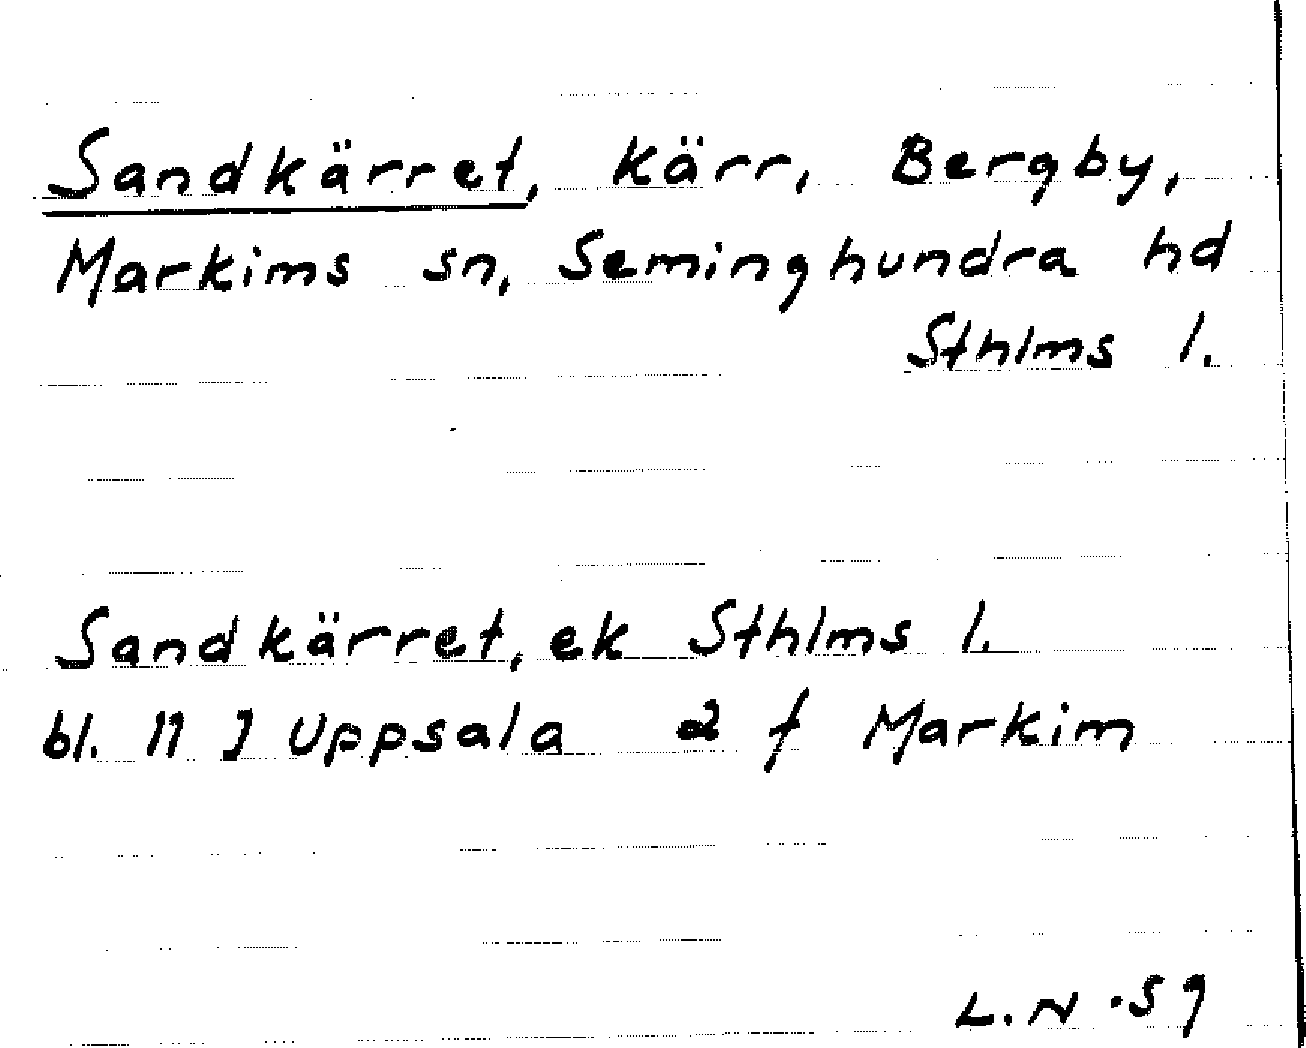 Sandkärret, kärr, Bergby,
Markims sn, Seminghundra hd
Sthlms l.
Sandkärret, ek Sthlms l.
bl. 11 J Uppsala 2 f Markim
L.N. 59